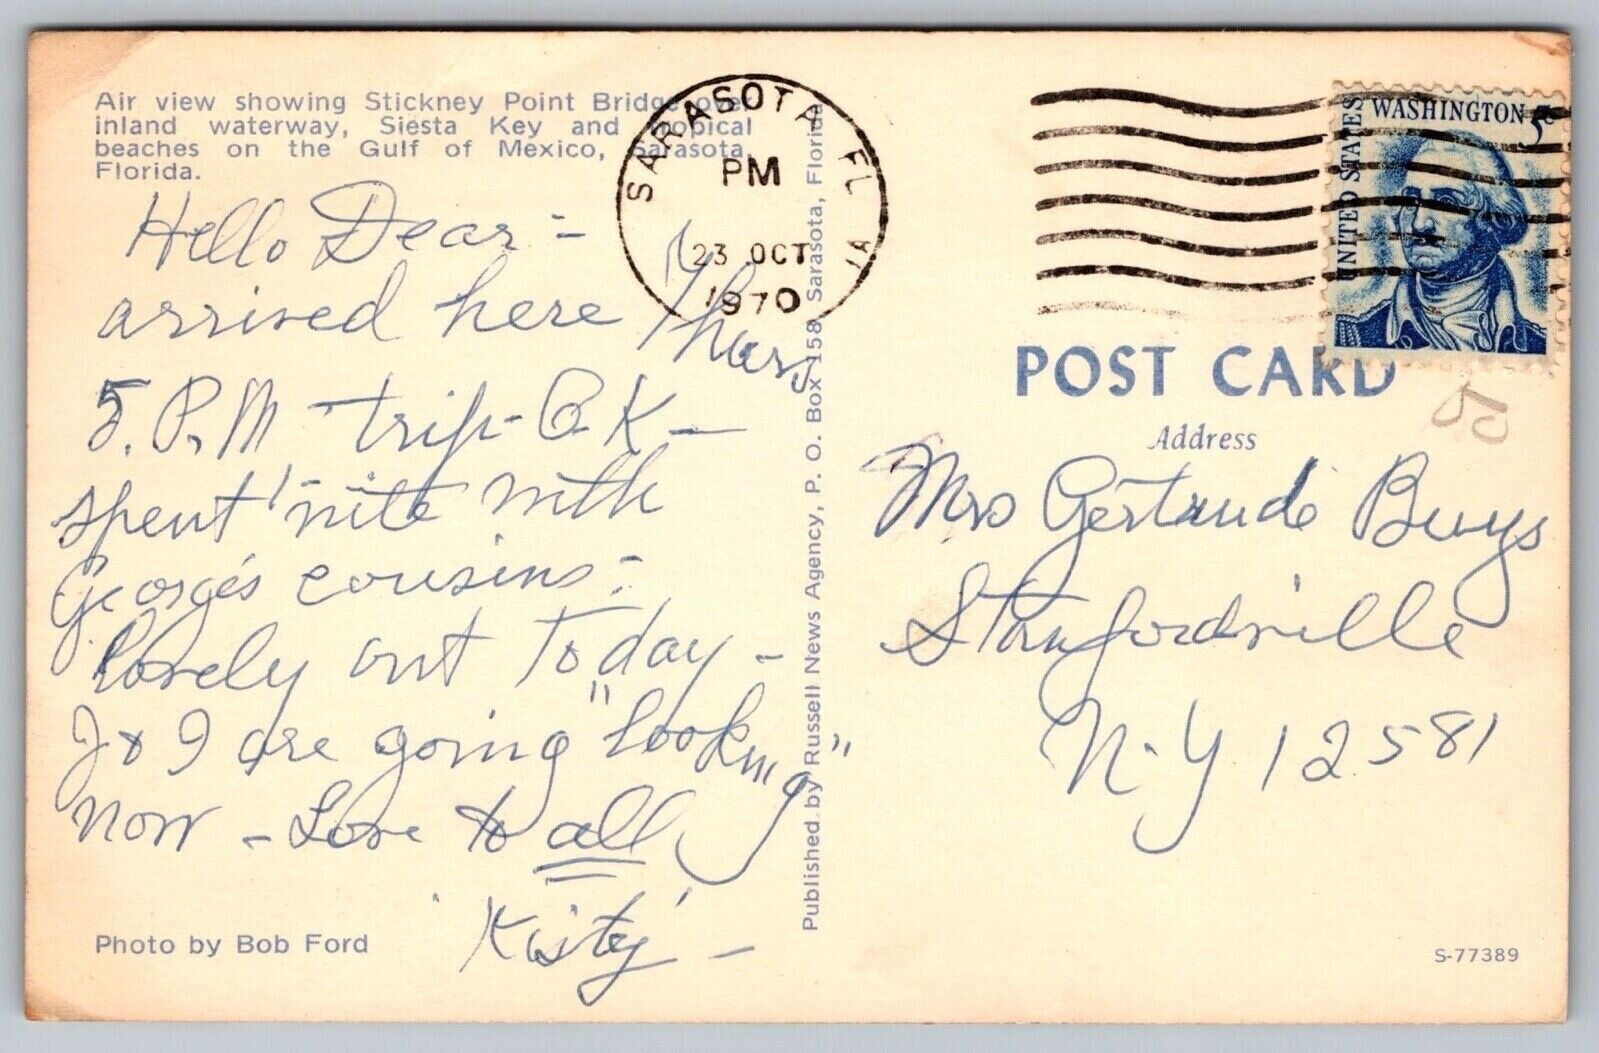 Air view showing Stickney Point Bridge over
inland waterway, Siesta Key and tropical
beaches on the Gulf of Mexico, Sarasota,
Florida.
Hello Dear =
arrived here Thurs
5. P.M trip - O.K -
spent 'nite with
George's cousins -
Lovely out today -
J & I are going "looking"
now - Love to all
'Kisty' -
Photo by Bob Ford
Published by Russell News Agency, P. O. Box 158 Sarasota, Florida
SARASOTA FL
PM
23 OCT
1970
UNITED STATES
WASHINGTON 5c
POST CARD
Address
Mrs Gertrude Buys
Stanfordville
N.Y 12581
S-77389